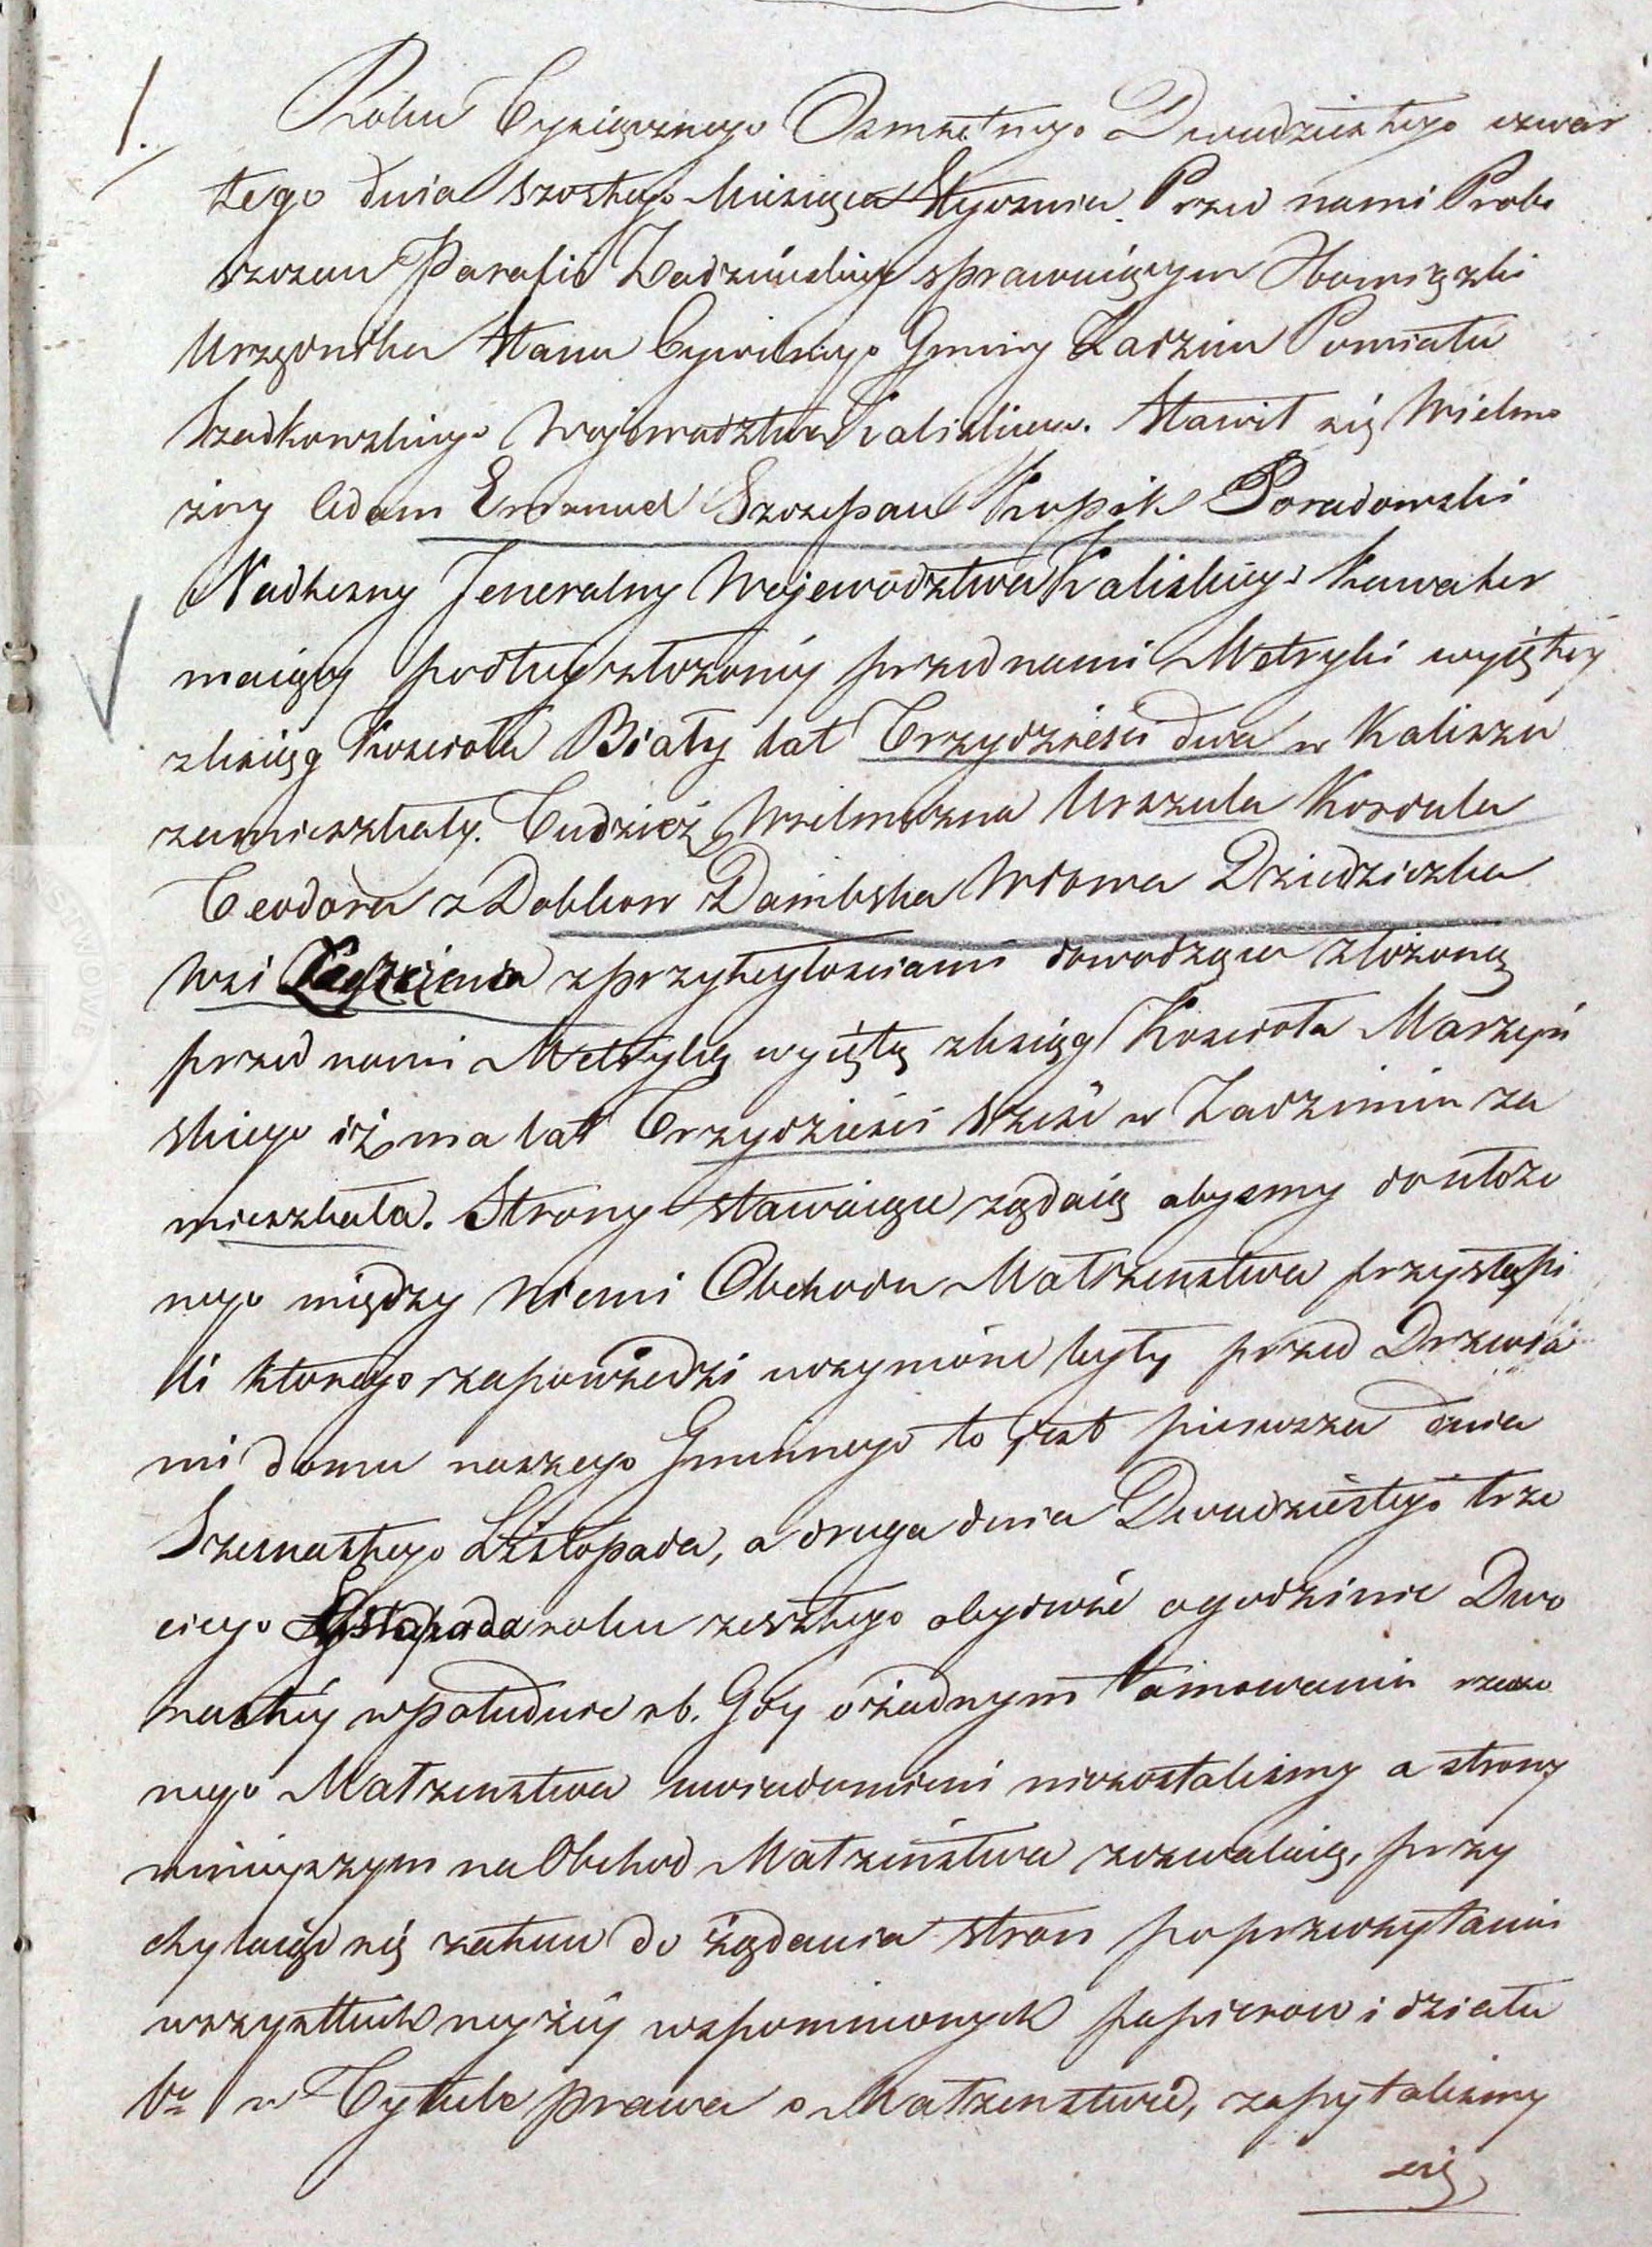 1.
Roku Tysiącznego Osmsetnego Dwudziestego czwar
tego dnia szostego Miesiąca Stycznia. Przed nami Probo
szczem Parafii Zadzimskiey sprawuiącym Obowiązki
Urzędnika Stanu Cywilnego Gminy Zadzim Powiatu
Szadkowskiego Wojewodztwa Kaliskiego. Stawił się Wielmo
żny Adam Emanuel Szczepan Kupik Poradowski
Nadlesny Jeneralny Wojewodztwa Kaliskiego Kawaler
maiący podług złożoniy przed nami Metryki wyiętey
z ksiąg Kosciola Biały lat Trzydziesci dwa w Kaliszu
zamieszkały. Tudzież Wielmożna Urszula Kordula
Teodora z Dobkow Dambska Wdowa Dziedziczka
Wsi z przyległosciami dowodząca złożoną
przed nami Metryką wyiętą z ksiąg Kosciola Marzyn
skiego iż ma lat Trzydziesci szesc w Zadzimiu za
mieszkała. Strony stawaiące żądaią abysmy do ułożo
nego między Niemi Obchodu Małzenstwa przystąpi
li ktorego zapowiedzi uczynione były przed Drzwia
mi domu naszego Gminnego to jest pierwsza dnia
Szesnastego Listopada, a druga dnia Dwudziestego trze
ciego Listopada roku zeszłego obydwie o godzinie Dwu
nastey w południe rb. Gdy o żadnym tamowaniu rzeczo
nego Małzenstwa uwiadomieni niezostalismy a strony
ninieyszym na Obchod Małzeństwa zezwalaią, przy
chylaiąc się zatem do żądania stron po przeczytaniu
wszystkich wyżey wspomnionych papierow i działu
Vgo w Tytule prawa o Małzenstwie, zapytalismy
się